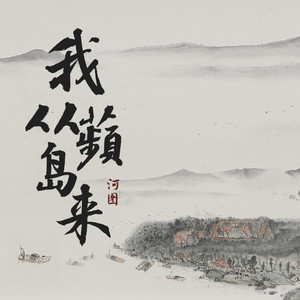 我从蘋岛来
河图